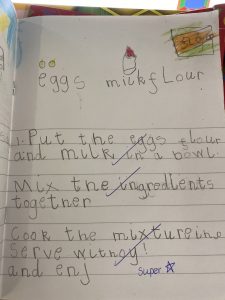 FLOUR
eggs milk flour
1. Put the eggs flour
and milk in a bowl.
Mix the ingredients
together
Cook the mixture
serve with
and enjoy!
Super